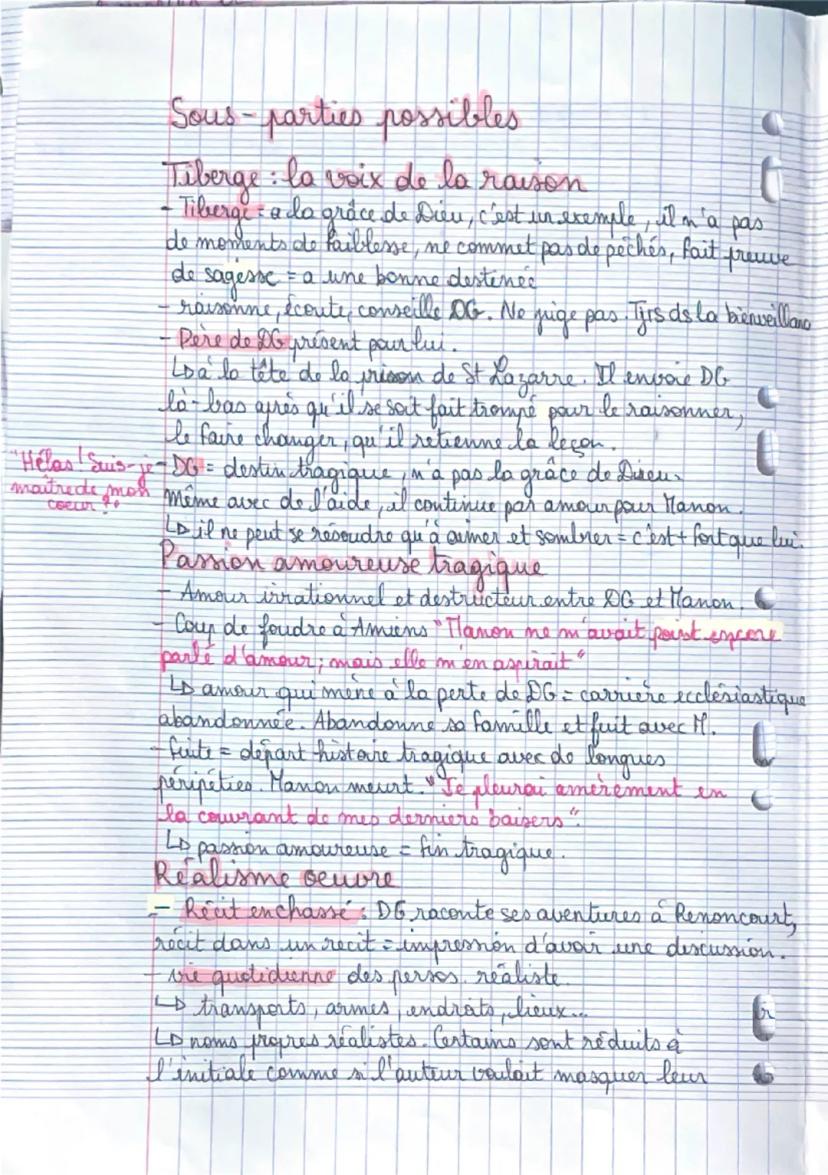 Sous-parties possibles
Tiberge : la voix de la raison
- Tiberge = a la grâce de Dieu, c'est un exemple, il n'a pas
de moments de faiblesse, ne commet pas de pêchés, fait preuve
de sagesse = a une bonne destinée
- raisonne, écoute, conseille DG. Ne juge pas. Tjrs ds la bienveillanc
- Père de DG présent pour lui.
↳ à la tête de la prison de St Lazarre. Il envoie DG
là-bas après qu'il se soit fait trompé pour le raisonner,
le faire changer, qu'il retienne la leçon.
"Hélas! Suis-je
maître de mon
coeur ?"
- DG = destin tragique, n'a pas la grâce de Dieu.
Même avec de l'aide, il continue par amour pour Manon.
↳ il ne peut se résoudre qu'à aimer et sombrer = c'est + fort que lui.
Passion amoureuse tragique
- Amour irrationnel et destructeur entre DG et Manon.
- Coup de foudre à Amiens "Manon ne m'avait point encore
parlé d'amour; mais elle m'en aspirait"
↳ amour qui mène à la perte de DG = carrière ecclésiastique
abandonnée. Abandonne sa famille et fuit avec M.
- fuite = départ histoire tragique avec de longues
péripéties. Manon meurt. "Je pleurai amèrement en
la couvrant de mes derniers baisers".
↳ passion amoureuse = fin tragique.
Réalisme oeuvre
- Récit enchassé : DG raconte ses aventures à Renoncourt,
récit dans un récit = impression d'avoir une discussion.
- vie quotidienne des persos réaliste.
↳ transports, armes, endroits, lieux...
↳ noms propres réalistes. Certains sont réduits à
l'initiale comme si l'auteur voulait masquer leur